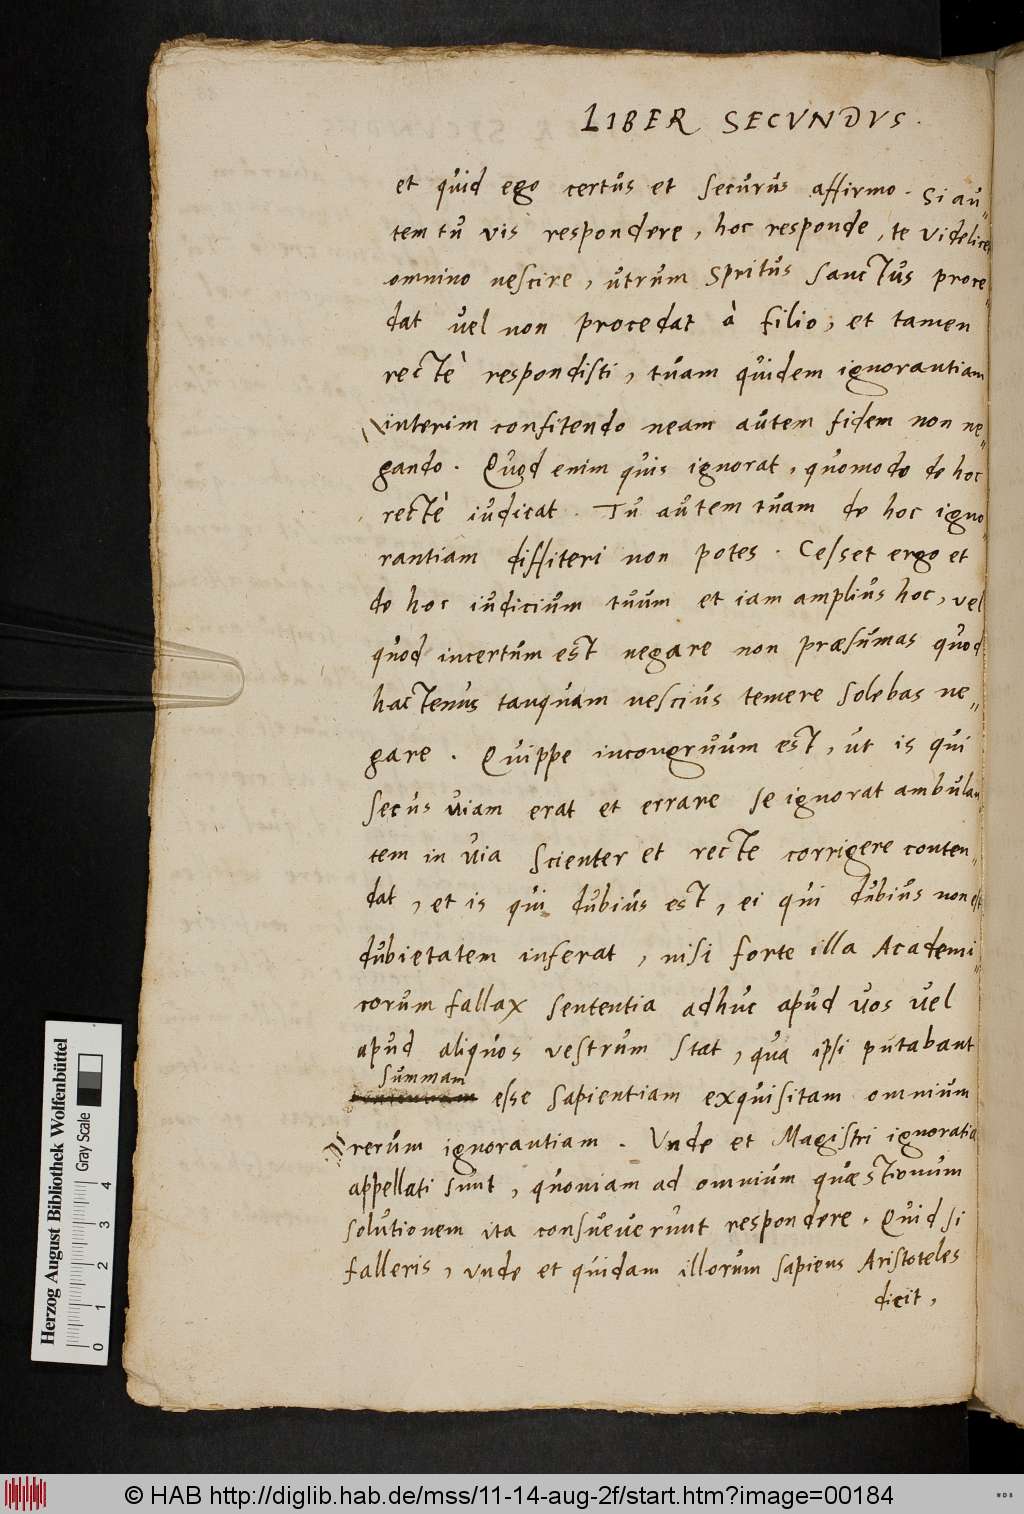 LIBER SECVNDVS.
et quid ego certus et securus affirmo. Si au„
tem tu vis respondere, hoc responde, te videlicet
omnino nescire, utrum Spritus sanctus proce„
dat vel non procedat à filio, et tamen
rectè respondisti, tuam quidem ignorantiam
interim confitendo neam autem fidem non ne„
gando. Quod enim quis ignorat, quomodo de hoc
rectè iudicat. Tu autem tuam de hoc igno„
rantiam diffiteri non potes. Cesset ergo et
de hoc iudicium tuum et iam amplius hoc, vel
quod incertum est negare non præsumas quod
hactenus tanquam nescius temere solebas ne„
gare. Quippe incongruum est, ut is qui
secus viam erat et errare se ignorat ambulan„
tem in via scienter et recte corrigere conten„
dat, et is qui dubius est, ei qui dubius non est
dubietatem inferat, nisi forte illa Academi„
corum fallax sententia adhuc apud vos vel
apud aliquos vestrum stat, qua ipsi putabant
summam
esse sapientiam exquisitam omnium
rerum ignorantiam. Unde et Magistri ignoratia
appellati sunt, quoniam ad omnium quæstionum
solutionem ita consueverunt respondere. Quid si
falleris, unde et quidam illorum sapiens Aristoteles
dicit,
Herzog August Bibliothek Wolfenbüttel
Gray Scale
0 1 2 3 4
© HAB http://diglib.hab.de/mss/11-14-aug-2f/start.htm?image=00184